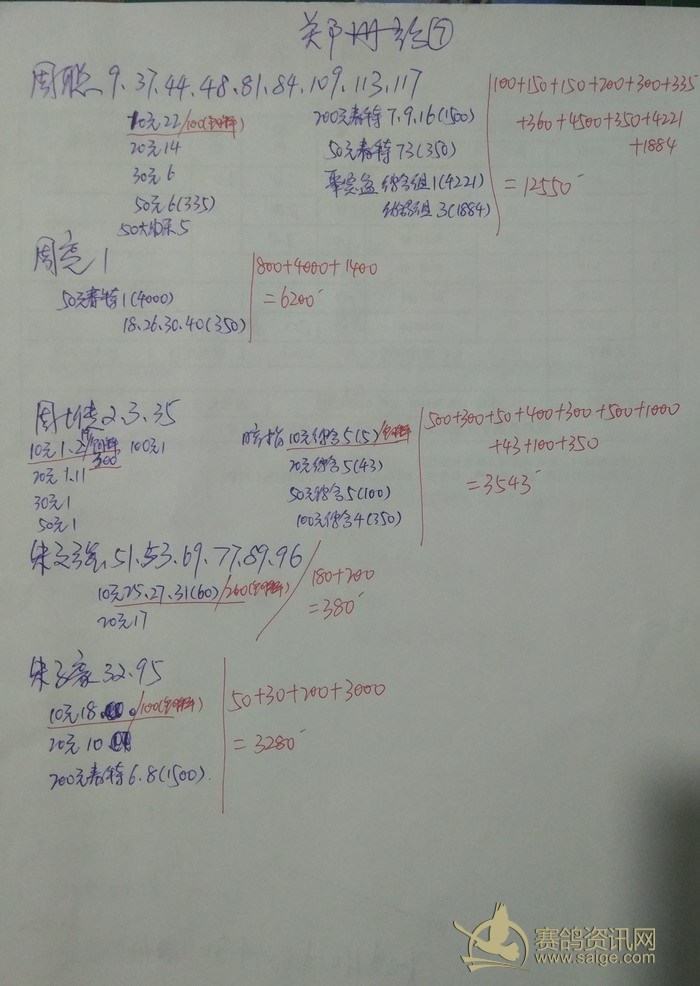 ⑦
周聪 9、37、44、48、81、84、109、113、117
10元22/100(全鸽料)
20元14
30元6
50元6(335)
50大 5
200元赛特7、9、16(1500)
50元赛特73(350)
综合组1(4221)
组3(1884)
100+150+150+200+300+335
+360+4500+350+4221
+1884
=12550
周亮1
50元赛特1(4000)
18、26、30、40(350)
800+4000+1400
=6200
周 2、3、35
10元1、2
300
100元1
20元1、11
30元1
50元1
10元综合5(5)
20元综合5(43)
50元综合5(100)
100元综合4(350)
500+300+50+400+300+500+1000
+43+100+350
=3543
朱文强、51、53、69、77、89、96
10元25、27、31(60)/200
20元17
180+200
=380
朱 32、95
10元18 /100
20元10
200元赛特6、8(1500)
50+30+200+3000
=3280
赛鸽资讯网
www.saige.com